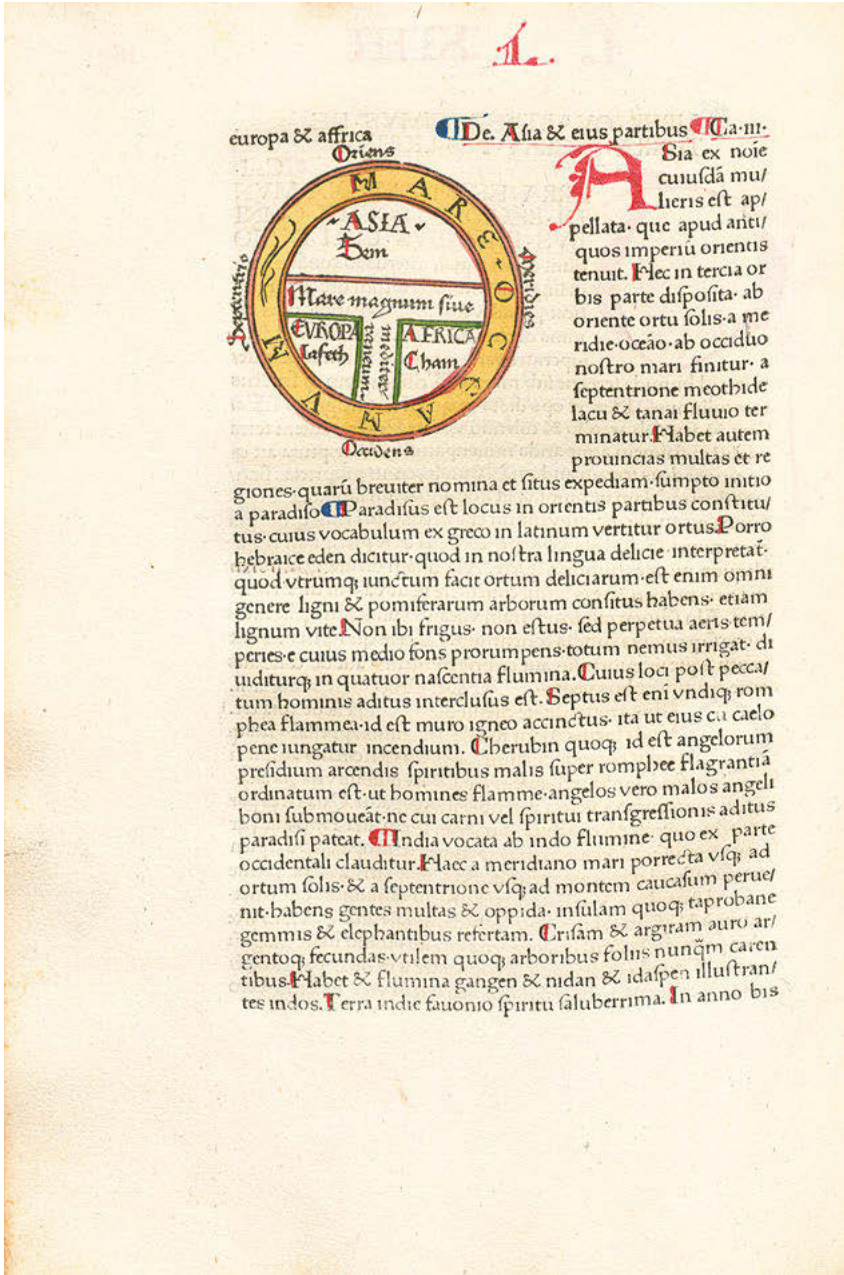 1.
europa & affrica
¶De. Asia & eius partibus ¶Ca·iii·
Oriens
MARE·OCCEAMVM
·ASIA·
Sem
Septentrio
Meridies
Mare magnum siue
EVROPA
Iafeth
mediter
raneum
AFRICA
Cham
Occidens
ASia ex noie
cuiusdā mu/
lieris est ap/
pellata· que apud anti/
quos imperiū orientis
tenuit. Hec in tercia or
bis parte disposita· ab
oriente ortu solis·a me
ridie·oceāo·ab occiduo
nostro mari finitur· a
septentrione meothide
lacu & tanai fluuio ter
minatur.Habet autem
prouincias multas et re
giones·quarū breuiter nomina et situs expediam·sumpto initio
a paradiso ¶Paradisus est locus in orientis partibus constitu/
tus·cuius vocabulum ex greco in latinum vertitur ortus.Porro
hebraice eden dicitur·quod in nostra lingua delicie interpretat̄·
quod vtrumq; iunctum facit ortum deliciarum·est enim omni
genere ligni & pomiferarum arborum consitus habens· etiam
lignum vite.Non ibi frigus· non estus· sed perpetua aeris tem/
peries·e cuius medio fons prorumpens·totum nemus irrigat· di
uiditurq; in quatuor nascentia flumina.Cuius loci post pecca/
tum hominis aditus interclusus est.Septus est enī vndiq; rom
phea flammea·id est muro igneo accinctus· ita ut eius cū caelo
pene iungatur incendium. Cherubin quoq; id est angelorum
presidium arcendis spiritibus malis super romphee flagrantiā
ordinatum est·ut homines flamme·angelos vero malos angeli
boni submoueāt·ne cui carni vel spiritui transgressionis aditus
paradisi pateat. ¶India vocata ab indo flumine· quo ex parte
occidentali clauditur.Haec a meridiano mari porrecta vsq; ad
ortum solis·& a septentrione vsq; ad montem caucasum perue/
nit·habens gentes multas & oppida· insulam quoq; taprobane
gemmis & elephantibus refertam. Crisam & argiram auro ar/
gentoq; fecundas·vtilem quoq; arboribus foliis nunq̄m caren
tibus.Habet & flumina gangen & nidan & idaspen illustran/
tes indos.Terra indie fauonio spiritu saluberrima. In anno bis